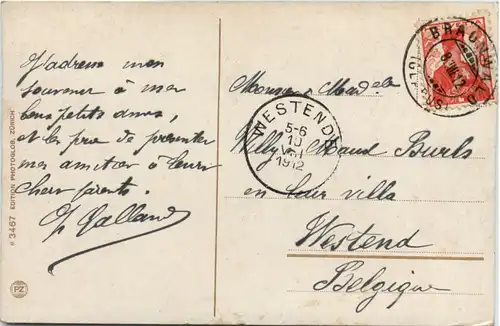 J'adresse mon
souvenir à mes
bons petits amis,
et les prie de présenter
mes amitiés à leurs
chers parents.
G. Galland
No 3467 EDITION PHOTOGLOB, ZÜRICH
PZ
BRAUNWALD
WESTENDE
5-6
10
VIII
1912
Monsieur & Mad elle
Willy & Maud Burls
en leur villa
Westend
Belgique